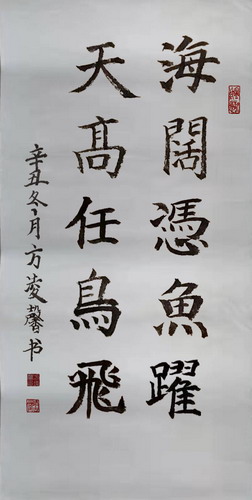 海闊憑魚躍
天高任鳥飛
辛丑冬月方菱馨书